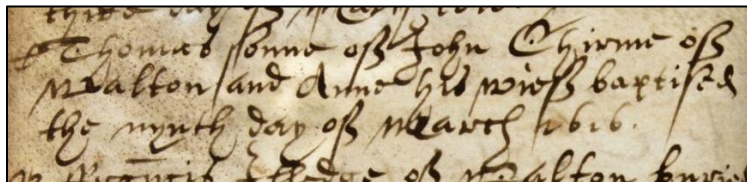 third day of March 1616
Thomas sonne off John Chirme off
Walton and Anne his wieff baptised
the nynth day off March 1616.
Walton buried